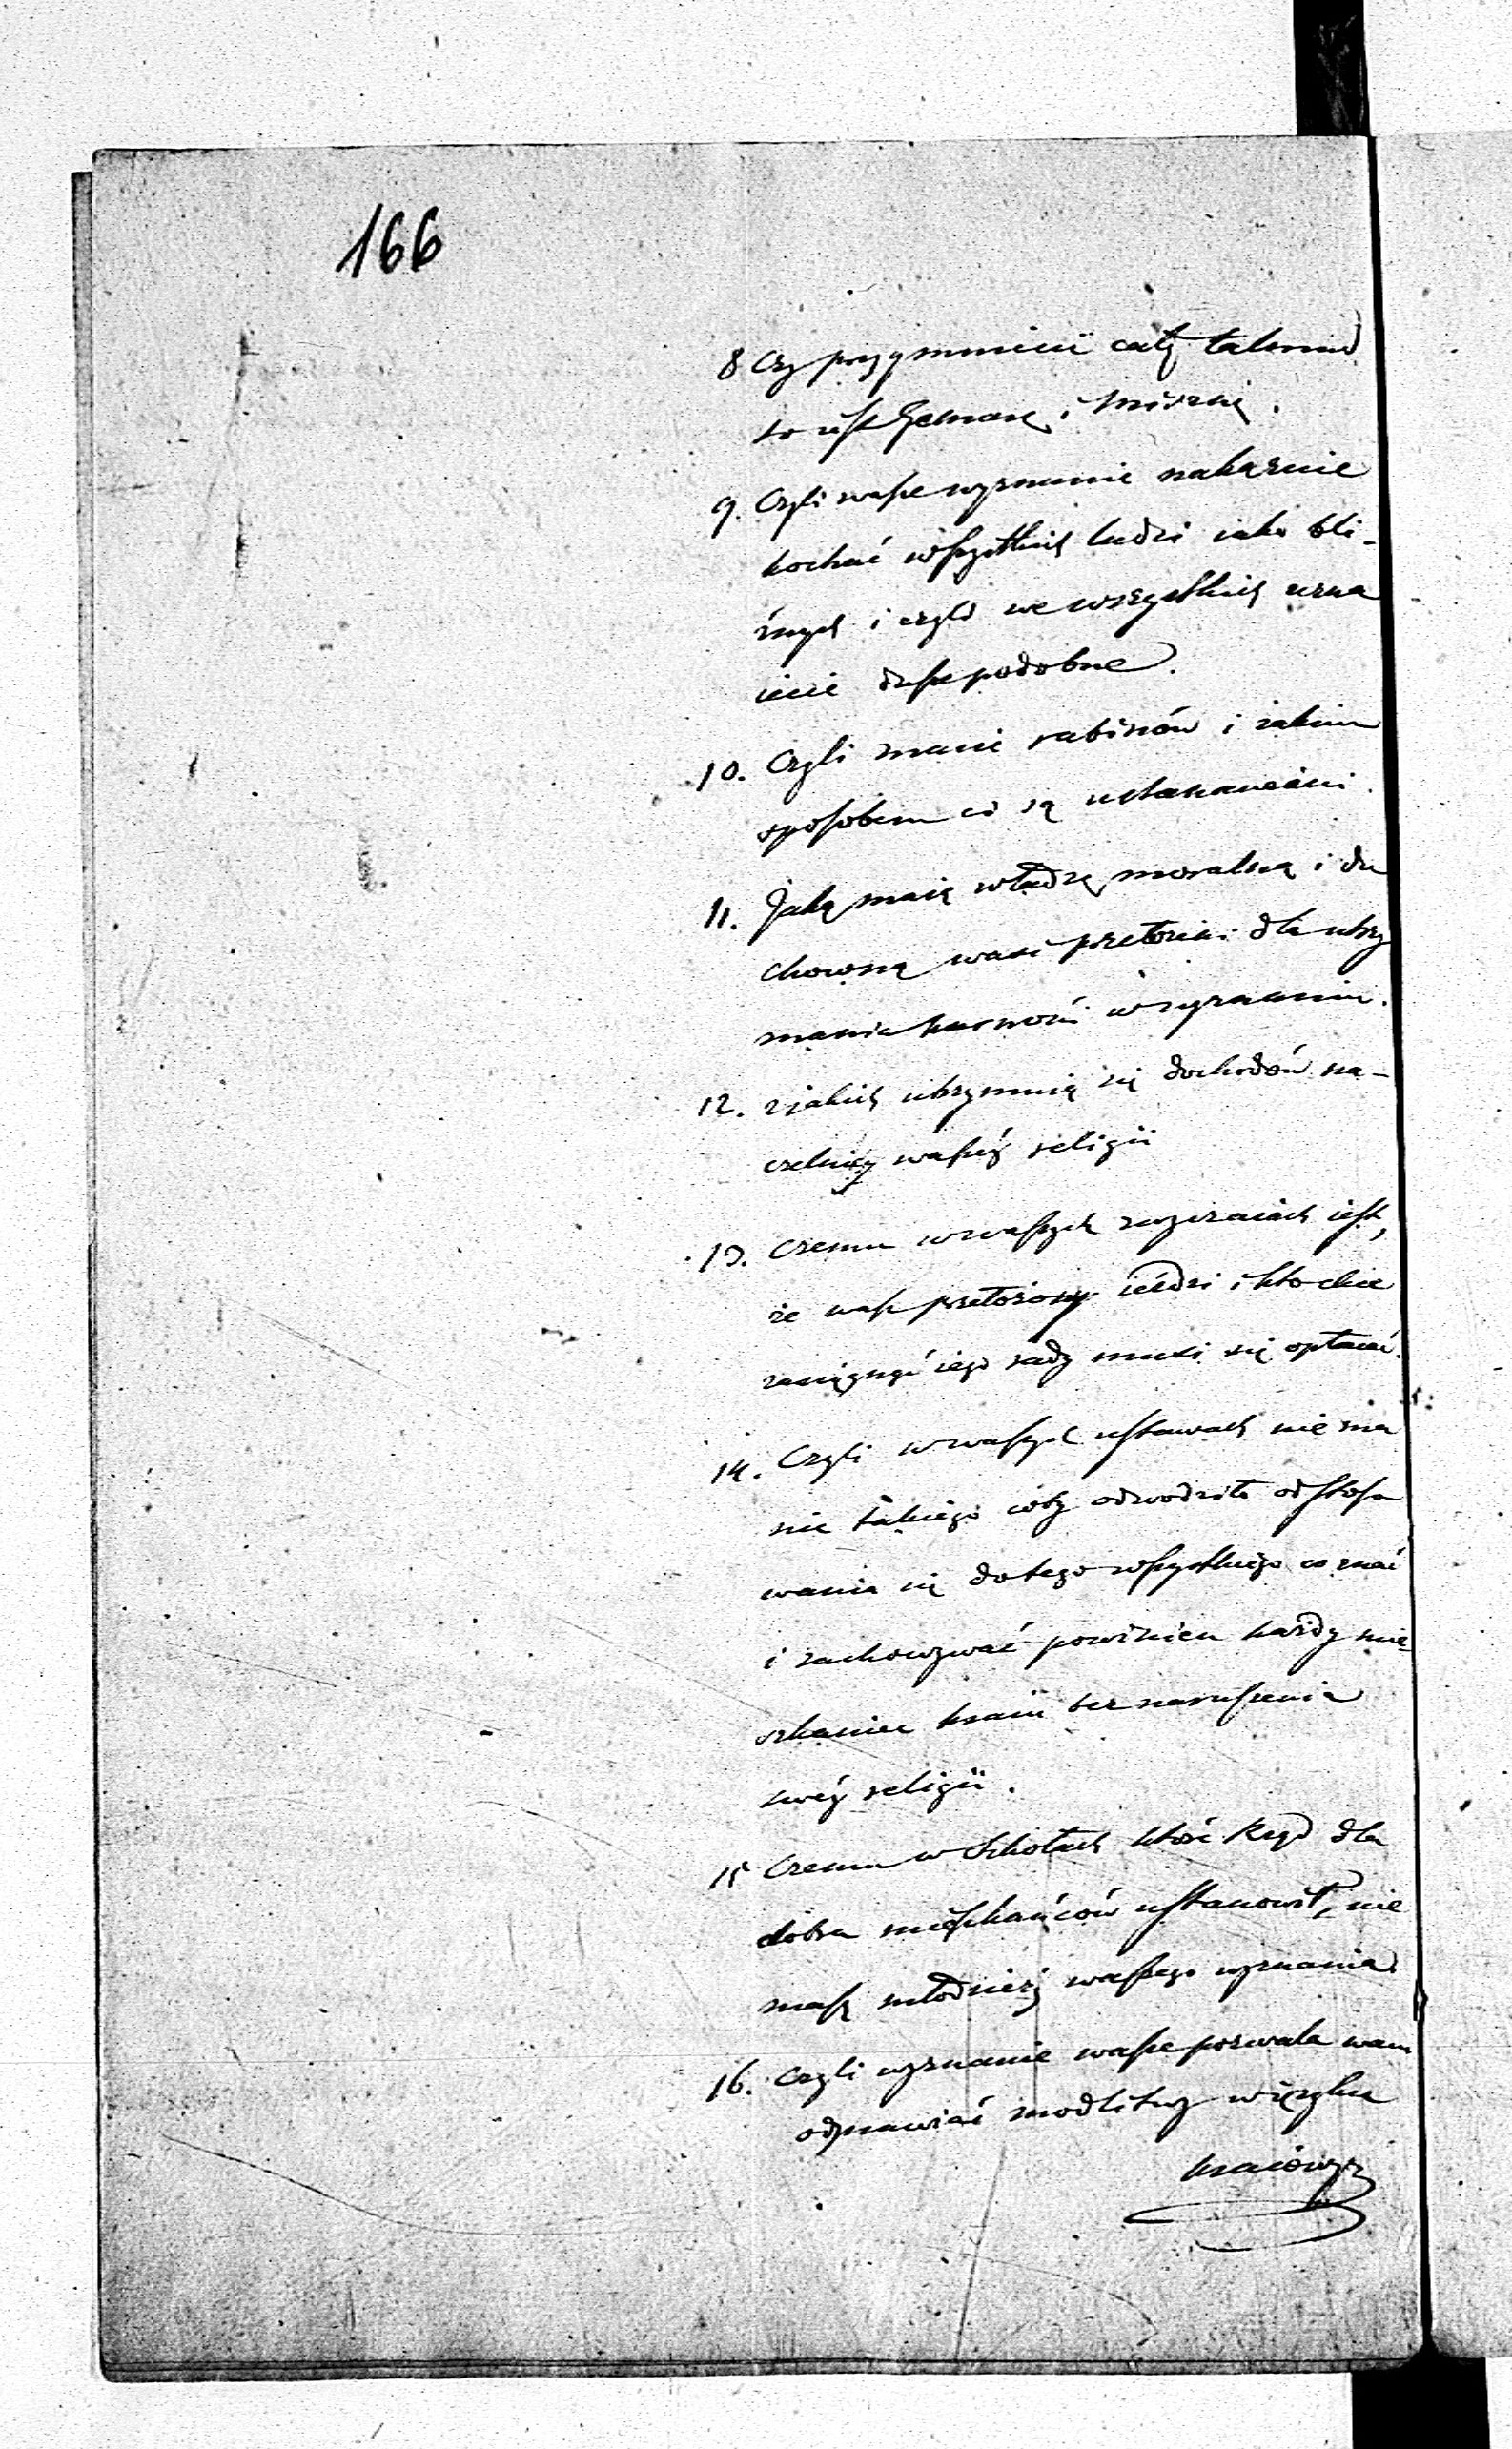 166
8 Czy przyjmuiecie cały talmud
to iest Gemarę i Misznę.
9. Czyli wasze wyznanie nakazuie
kochać wszystkich ludzi iako bli-
źnych i czyli we wszystkich uzna
iecie dusze podobne.
10. Czyli macie rabinów i iakim
sposobem ci są ustanawiani.
11. Jaką maią władzę moralną i du
chowną wasi przełożeni dla utrzy
mania karności w wyznaniu.
12. z jakich utrzymuią się dochodów na-
czelnicy waszey religii
13. Czemu w waszych zwyczaiach iest,
że wasz przełożony ieździ i kto chce
zasięgnąć iego rady musi się opłacać.
14. Czyli w waszych ustawach nie ma
nic takiego coby odwodziło od stoso
wania się do tego wszystkiego co znać
i zachowywać powinien każdy mie
szkaniec kraiu bez naruszenia
swéy religii.
15 Czemu w Szkołach które Rząd dla
dobra mieszkańców ustanowił, nie
masz młodzieży waszego wyznania
16. Czyli wyznanie wasze pozwala wam
odmawiać modlitwy w ięzyku
kraiowym